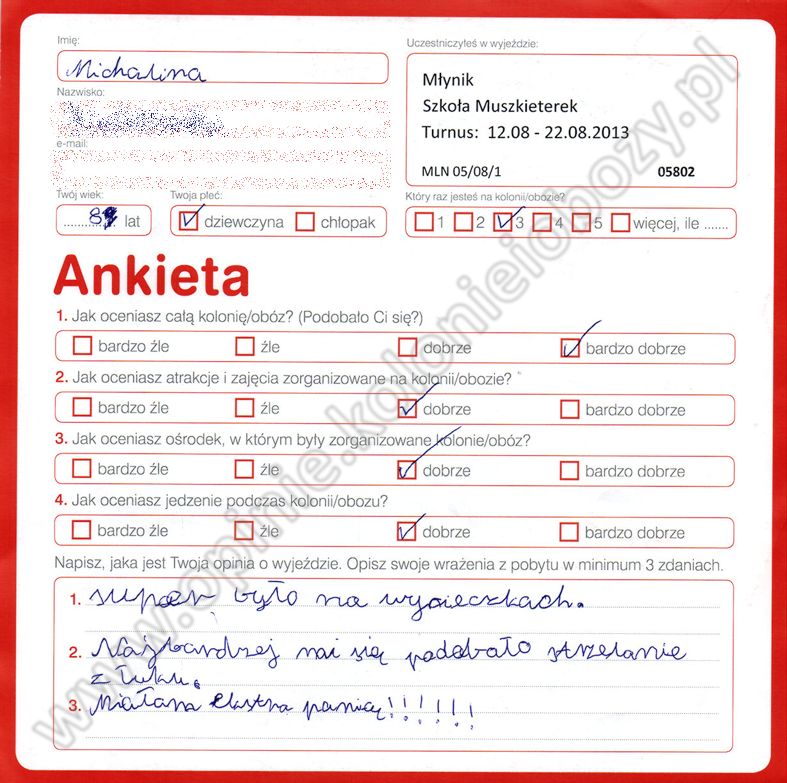 Imię:
Michalina
Nazwisko:
e-mail:
Twój wiek:
8 lat
Twoja płeć:
dziewczyna chłopak
Uczestniczyłeś w wyjeździe:
Młynik
Szkoła Muszkieterek
Turnus: 12.08 - 22.08.2013
MLN 05/08/1 05802
Który raz jesteś na kolonii/obozie?
1 2 3 4 5 więcej, ile .......
Ankieta
1. Jak oceniasz całą kolonię/obóz? (Podobało Ci się?)
bardzo źle źle dobrze bardzo dobrze
2. Jak oceniasz atrakcje i zajęcia zorganizowane na kolonii/obozie?
bardzo źle źle dobrze bardzo dobrze
3. Jak oceniasz ośrodek, w którym były zorganizowane kolonie/obóz?
bardzo źle źle dobrze bardzo dobrze
4. Jak oceniasz jedzenie podczas kolonii/obozu?
bardzo źle źle dobrze bardzo dobrze
Napisz, jaka jest Twoja opinia o wyjeździe. Opisz swoje wrażenia z pobytu w minimum 3 zdaniach.
1. super było na wycieczkach.
2. Najbardzej mi się podobało strzelanie
z łuku.
3. Miałam ekstra panią!!!!!!
www.opinie.kolonieiobozy.pl